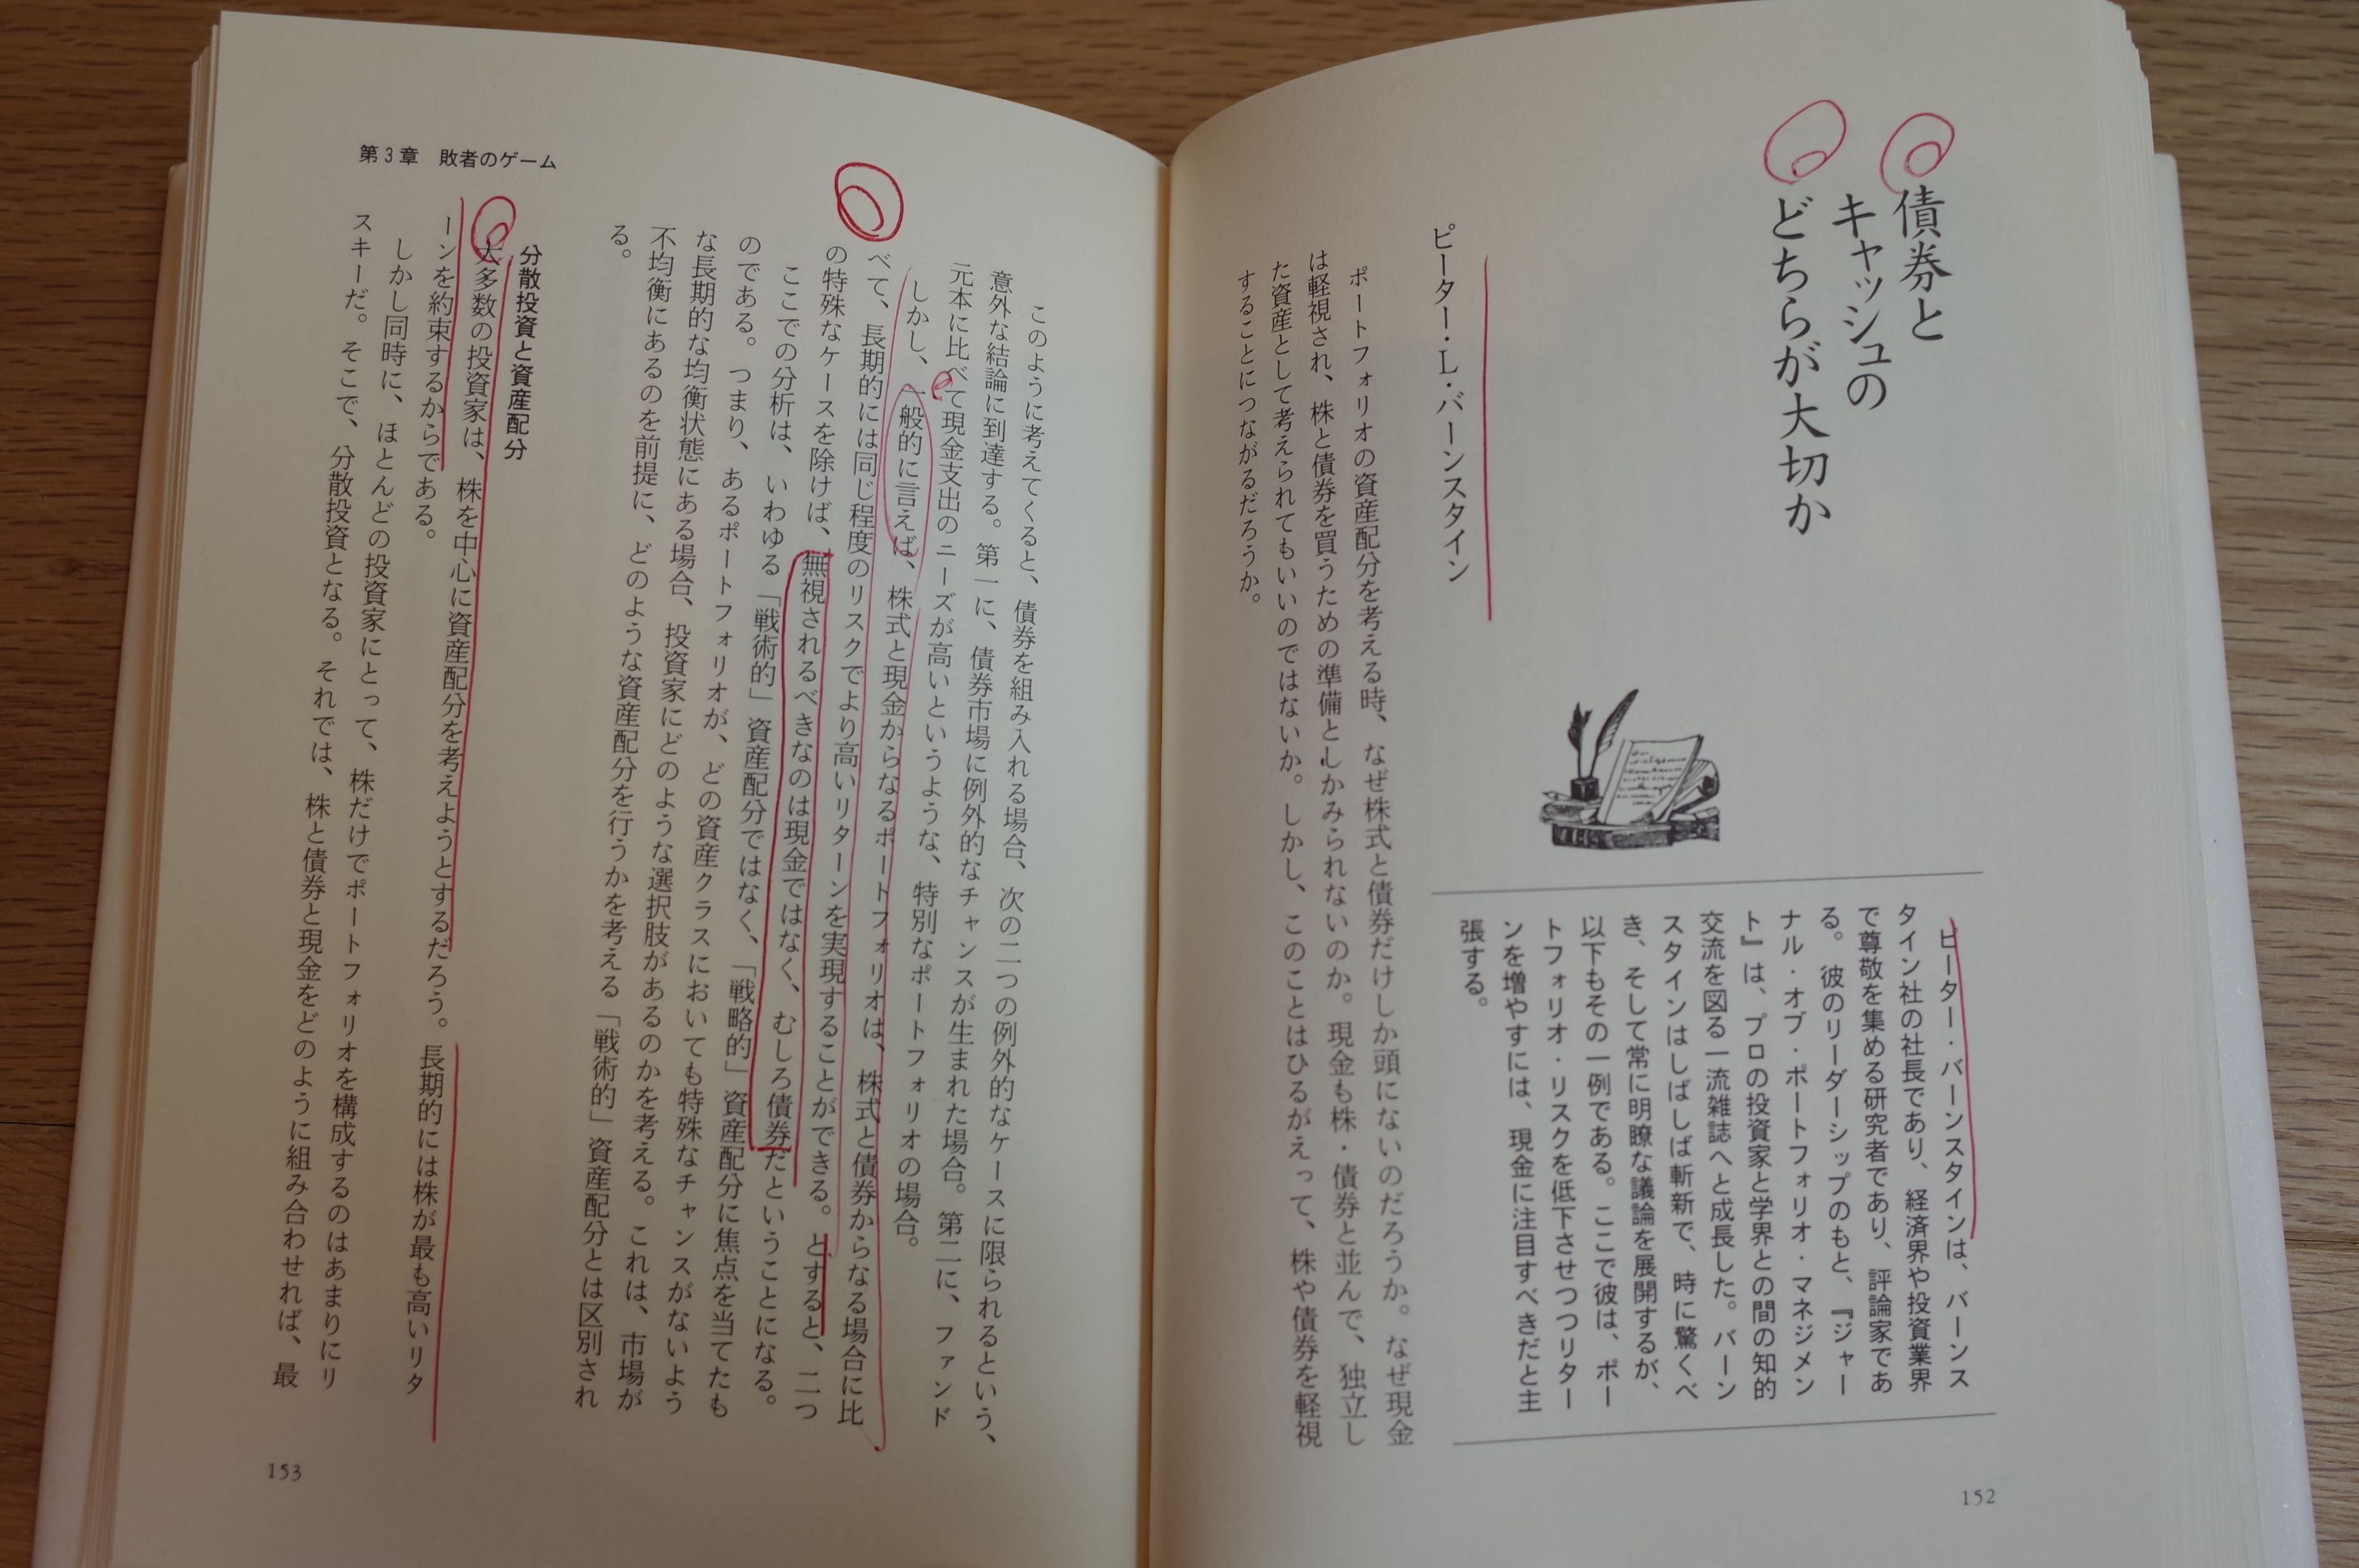 債券と
キャッシュの
どちらが大切か
ピーター・L・バーンスタイン
ピーター・バーンスタインは、バーンス
タイン社の社長であり、経済界や投資業界
で尊敬を集める研究者であり、評論家であ
る。彼のリーダーシップのもと、『ジャー
ナル・オブ・ポートフォリオ・マネジメン
ト』は、プロの投資家と学界との間の知的
交流を図る一流雑誌へと成長した。バーン
スタインはしばしば斬新で、時に驚くべ
き、そして常に明瞭な議論を展開するが、
以下もその一例である。ここで彼は、ポー
トフォリオ・リスクを低下させつつリター
ンを増やすには、現金に注目すべきだと主
張する。
ポートフォリオの資産配分を考える時、なぜ株式と債券だけしか頭にないのだろうか。なぜ現金
は軽視され、株と債券を買うための準備としかみられないのか。現金も株・債券と並んで、独立し
た資産として考えられてもいいのではないか。しかし、このことはひるがえって、株や債券を軽視
することにつながるだろうか。
152
第3章 敗者のゲーム
このように考えてくると、債券を組み入れる場合、次の二つの例外的なケースに限られるという、
意外な結論に到達する。第一に、債券市場に例外的なチャンスが生まれた場合。第二に、ファンド
元本に比べて現金支出のニーズが高いというような、特別なポートフォリオの場合。
しかし、一般的に言えば、株式と現金からなるポートフォリオは、株式と債券からなる場合に比
べて、長期的には同じ程度のリスクでより高いリターンを実現することができる。とすると、二つ
の特殊なケースを除けば、無視されるべきなのは現金ではなく、むしろ債券だということになる。
ここでの分析は、いわゆる「戦術的」資産配分ではなく、「戦略的」資産配分に焦点を当てたも
のである。つまり、あるポートフォリオが、どの資産クラスにおいても特殊なチャンスがないよう
な長期的な均衡状態にある場合、投資家にどのような選択肢があるのかを考える。これは、市場が
不均衡にあるのを前提に、どのような資産配分を行うかを考える「戦術的」資産配分とは区別され
る。
分散投資と資産配分
大多数の投資家は、株を中心に資産配分を考えようとするだろう。長期的には株が最も高いリタ
ーンを約束するからである。
しかし同時に、ほとんどの投資家にとって、株だけでポートフォリオを構成するのはあまりにリ
スキーだ。そこで、分散投資となる。それでは、株と債券と現金をどのように組み合わせれば、最
153